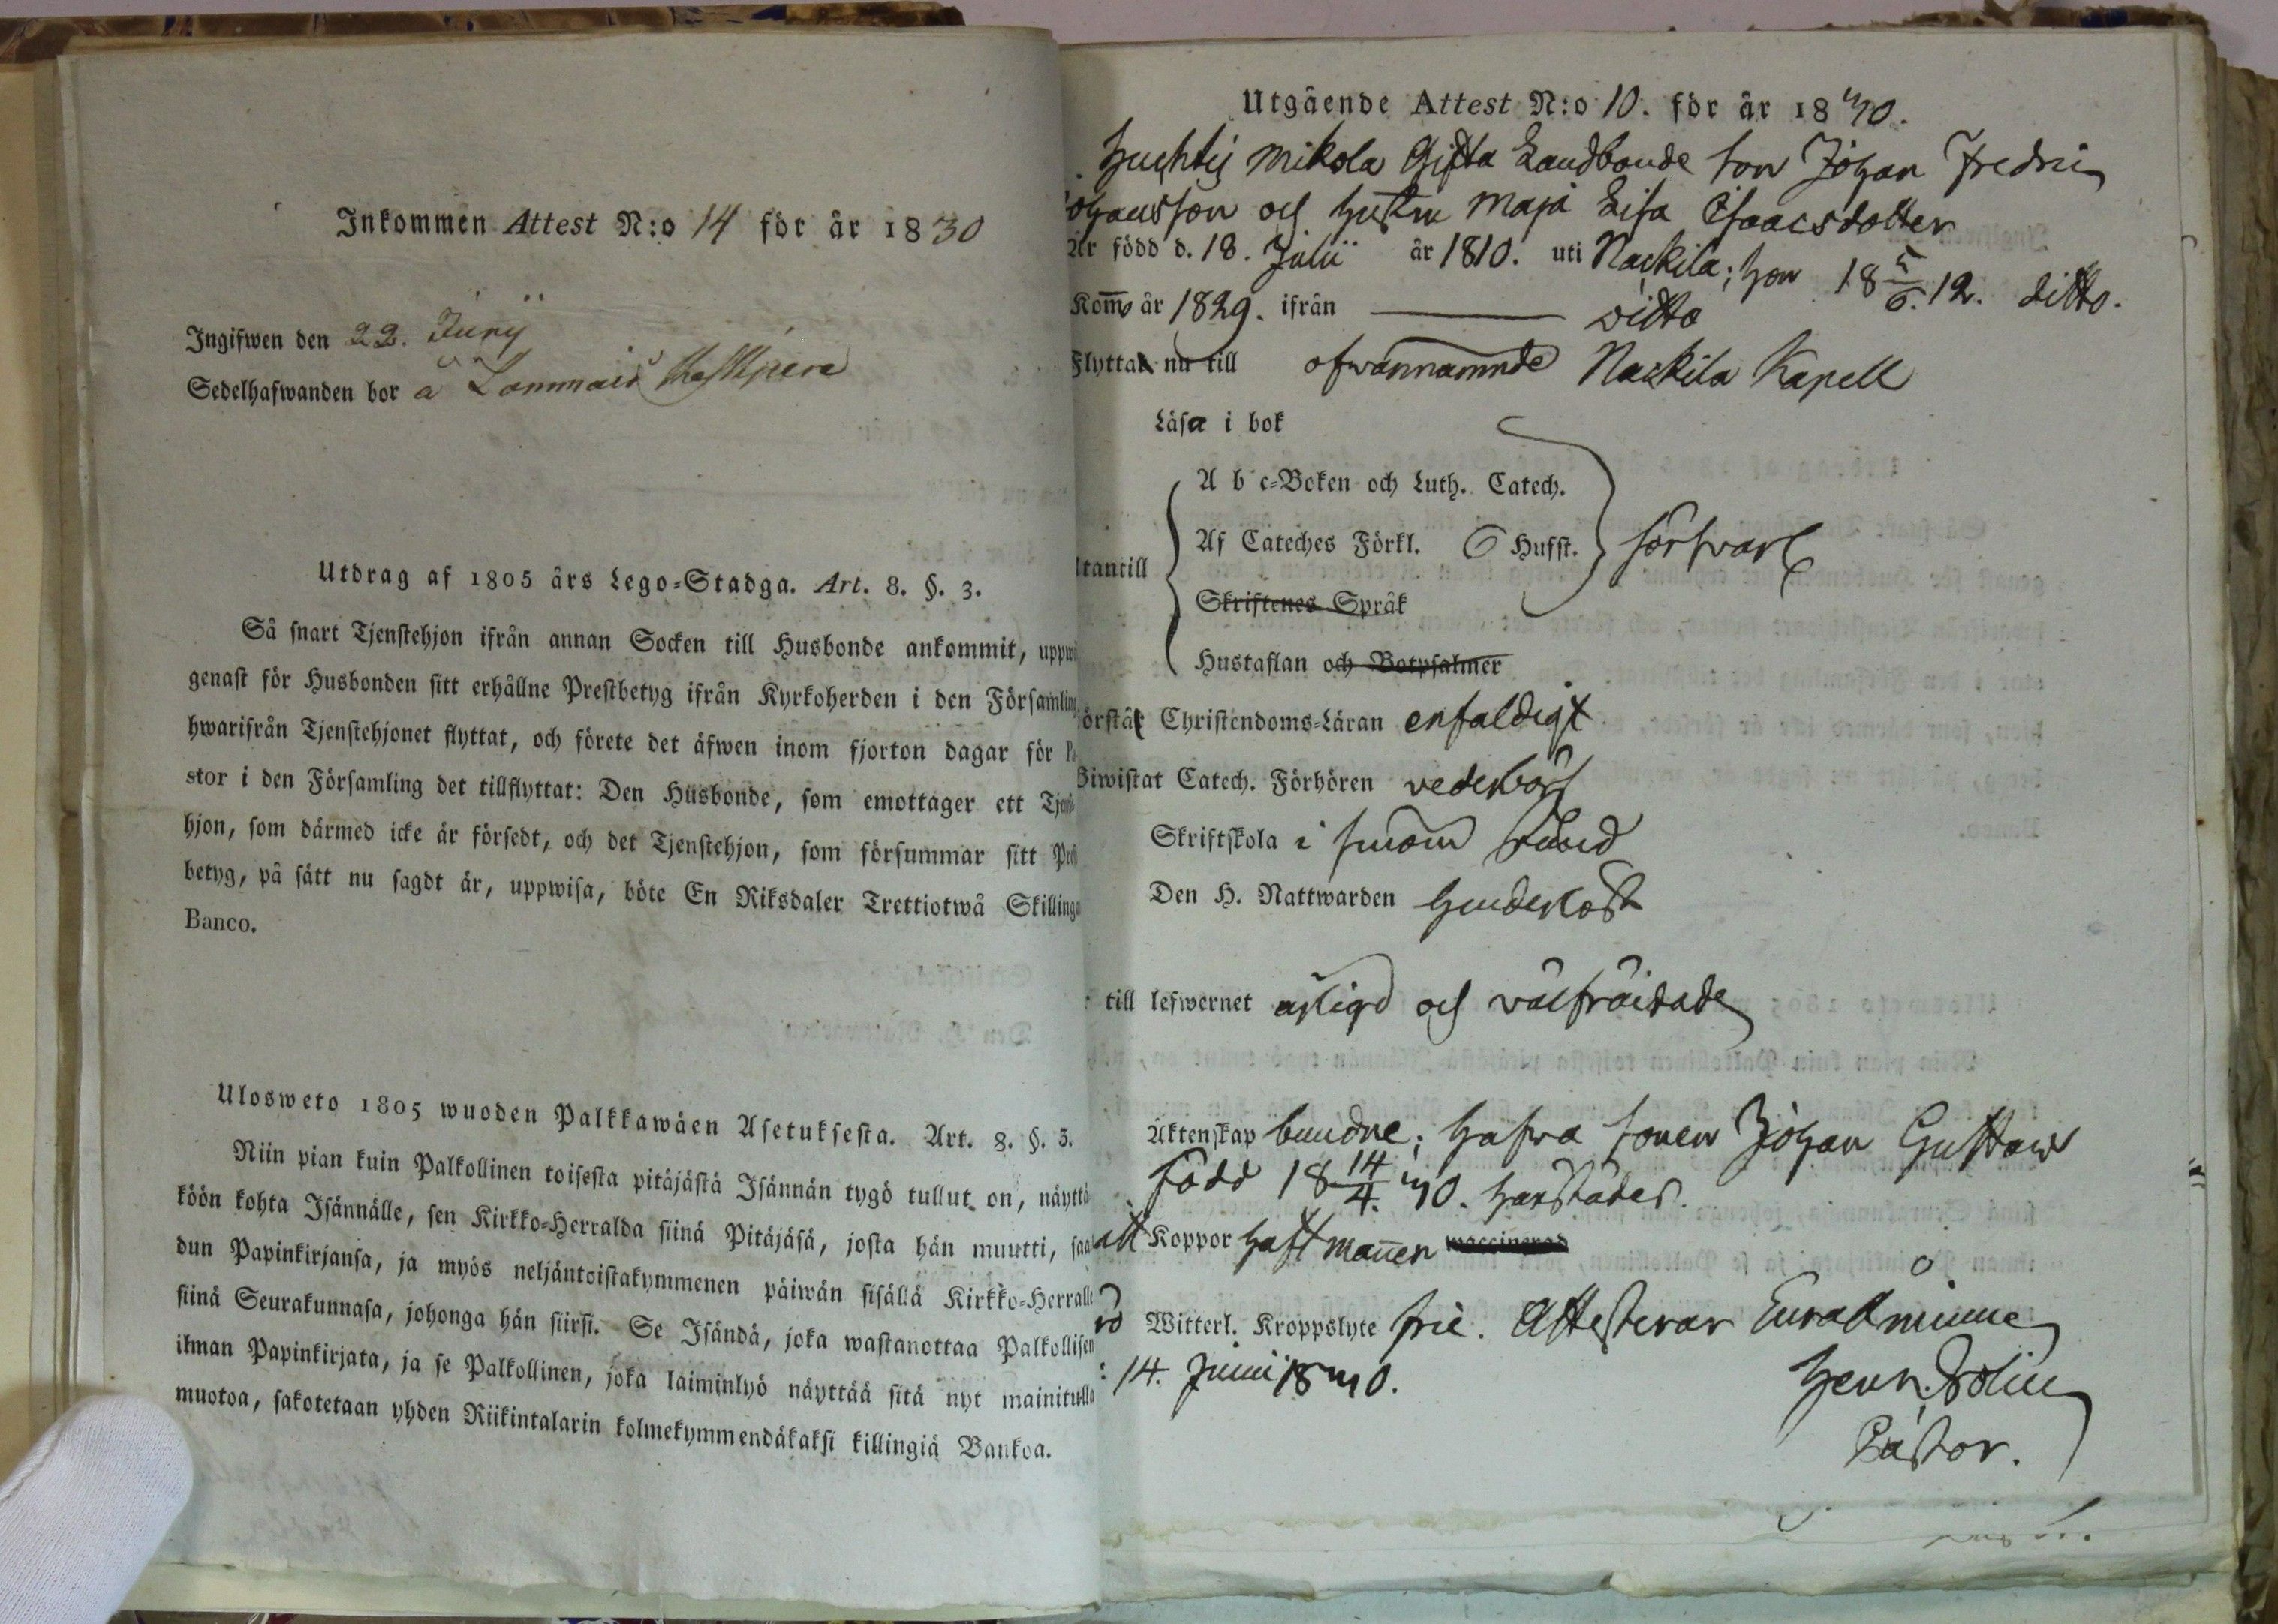 Inkommen Attest N:o 14 för år 1830
Ingifwen den 22. Junij
Sedelhafwanden bor å Lammais
Utdrag af 1805 års Lego-Stadga. Art. 8. §. 3.
Så snart Tjenstehjon ifrån annan Socken till Husbonde ankommit, uppwi
genast för Husbonden sitt erhållne Prestbetyg ifrån Kyrkoherden i den Församling
hwarifrån Tjenstehjonet flyttat, och förete det äfwen inom fjorton dagar för Pa
stor i den Församling det tillflyttat: Den Husbonde, som emottager ett Tjenste
hjon, som därmed icke är försedt, och det Tjenstehjon, som försummar sitt Prest
betyg, på sätt nu sagdt är, uppwisa, böte En Riksdaler Trettiotwå Skillingar
Banco.
Ulosweto 1805 wuoden Palkkawäen Asetuksesta. Art. 8. §. 3.
Niin pian kuin Palkollinen toisesta pitäjästä Isännän tygö tullut on, näyttä
köön kohta Isännälle, sen Kirkko-Herralda siinä Pitäjäsä, josta hän muutti, saa
dun Papinkirjansa, ja myös neljäntoistakymmenen päiwän sisällä Kirkko-Herralle
siinä Seurakunnasa, johonga hän siirsi. Se Isändä, joka wastanottaa Palkollisen
ilman Papinkirjata, ja se Palkollinen, joka laiminlyö näyttää sitä nyt mainitulla
muotoa, sakotetaan yhden Riikintalarin kolmekymmendäkaksi killingiä Bankoa.
Utgående Attest N:o 10. för år 1840.
Mikola Gifta Landbonde son Johan Fredric
Johansson och hustru Maja Lisa Isaacsdotter
Är född d. 18. Julii år 1810. uti Nackila; hon 18 5/6. 12. ditto.
Komō år 1829. ifrån ditto
Flytta nu till ofwannamnde Nackila Kapell
Läsa i bok
A b c-Boken och Luth. Catech.
Af Cateches Förkl. 6 Hufst. försvarl
Utantill
Skriftenes Språk
Hustaflan och Botpsalmer
örstår Christendoms-Läran enfaldigt
Biwistat Catech. Förhören vederbörl
Skriftskola i sinom stund
Den H. Nattwarden
till lefwernet ärligd och välfräidade
Äktenskap bundne; hafwa sonen Johan Gustaw
född 18 14/4. 40. härstädes.
att Koppor haft mannen waccinerad
Witterl. Kroppslyte frie. Attesterar Euraåminne
14. Junii 1840.
Henr. Polin
Pastor.